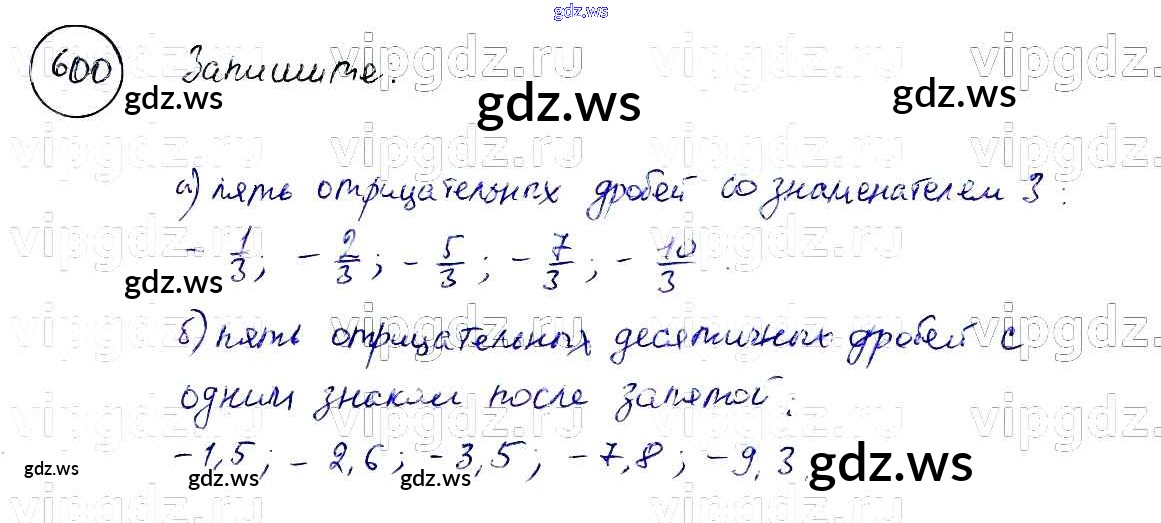 gdz.ws
600 Запишите:
gdz.ws gdz.ws gdz.ws
vipgdz.ru vipgdz.ru vipgdz.ru vipgdz.ru
а) пять отрицательных дробей со знаменателем 3:
- 1/3; - 2/3; - 5/3; - 7/3; - 10/3.
gdz.ws
б) пять отрицательных десятичных дробей с
одним знаком после запятой:
-1,5; - 2,6; -3,5; -7,8; -9,3.
gdz.ws gdz.ws gdz.ws gdz.ws